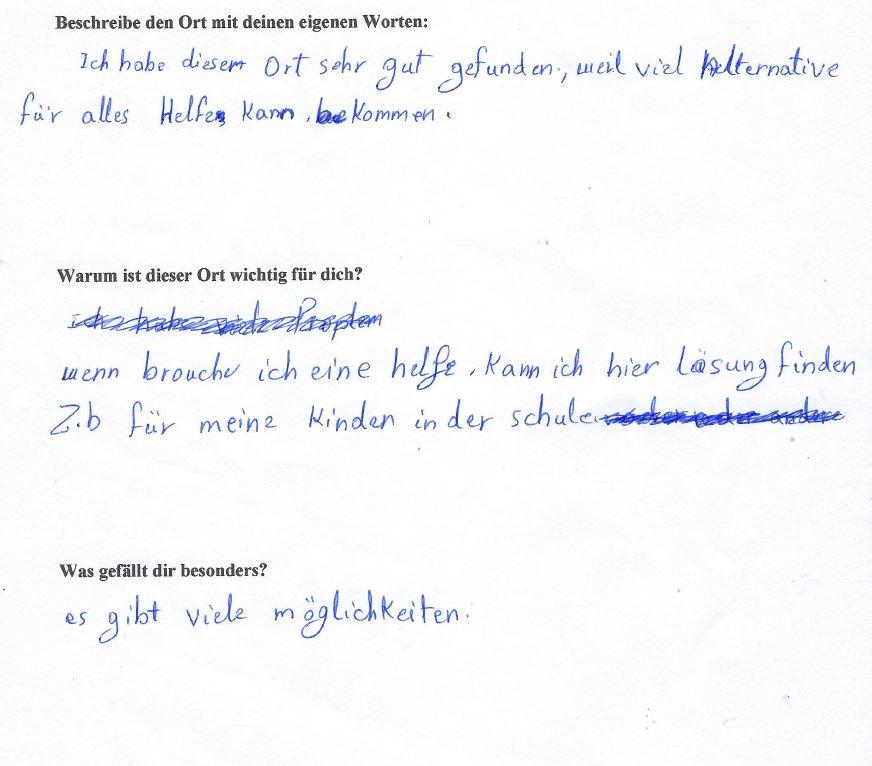 Beschreibe den Ort mit deinen eigenen Worten:
Ich habe diesem Ort sehr gut gefunden, weil viel Alternative
für alles Helfe kann bekommen.
Warum ist dieser Ort wichtig für dich?
wenn brouche ich eine helfe, kann ich hier Läsung finden
Z.b für meine Kinden in der schule
Was gefällt dir besonders?
es gibt viele möglichkeiten.